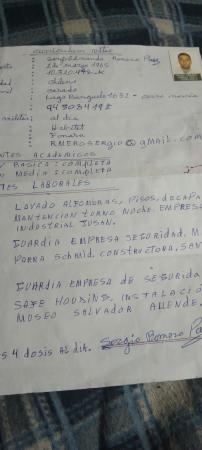 curriculum vitae
: Romero Paez
: 2 de março 1965
: 10.320.498-K
: chileno
: casado
: Lago Ranquil 1632 -
: 943034198
: al dia
: Habitat
: Fonasa
: RMEROSERGIO@gmail.com
NTES ACADEMICOS
BASICA: COMPLETA
N MEDIA COMPLETA
TES LABORALES
LAVADO ALFOMBRAS, PISOS, DECAPA
MANTENCION TURNO NOCHE. EMPRESA
INDUSTRIAL SUSAN.
GUARDIA EMPRESA SEGURIDAD. M
PARRA SCHMID, CONSTRUCTORA, SAN
GUARDIA EMPRESA DE SEGURIDA
SAFE HOUSING, INSTALACIÓ
MUSEO SALVADOR ALLENDE,
s 4 dosis Al dia. Sergio Romero Pa